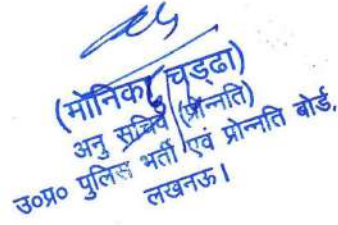 (मोनिका चड्ढा)
अनु सचिव (प्रोन्नति)
उ०प्र० पुलिस भर्ती एवं प्रोन्नति बोर्ड,
लखनऊ।